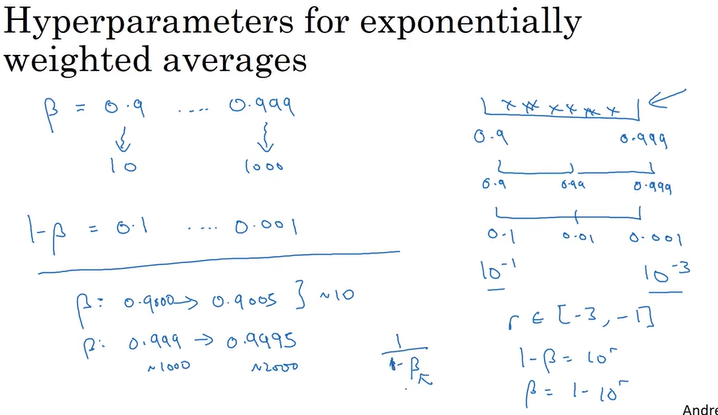 Hyperparameters for exponentially
weighted averages
β = 0.9 .... 0.999
10 1000
1-β = 0.1 .... 0.001
β: 0.9000 → 0.9005 } ~10
β: 0.999 → 0.9995
~1000 ~2000
1
1-β
0.9 0.999
0.9 0.99 0.999
0.1 0.01 0.001
10⁻¹ 10⁻³
r ∈ [-3, -1]
1-β = 10ʳ
β = 1-10ʳ
Andre